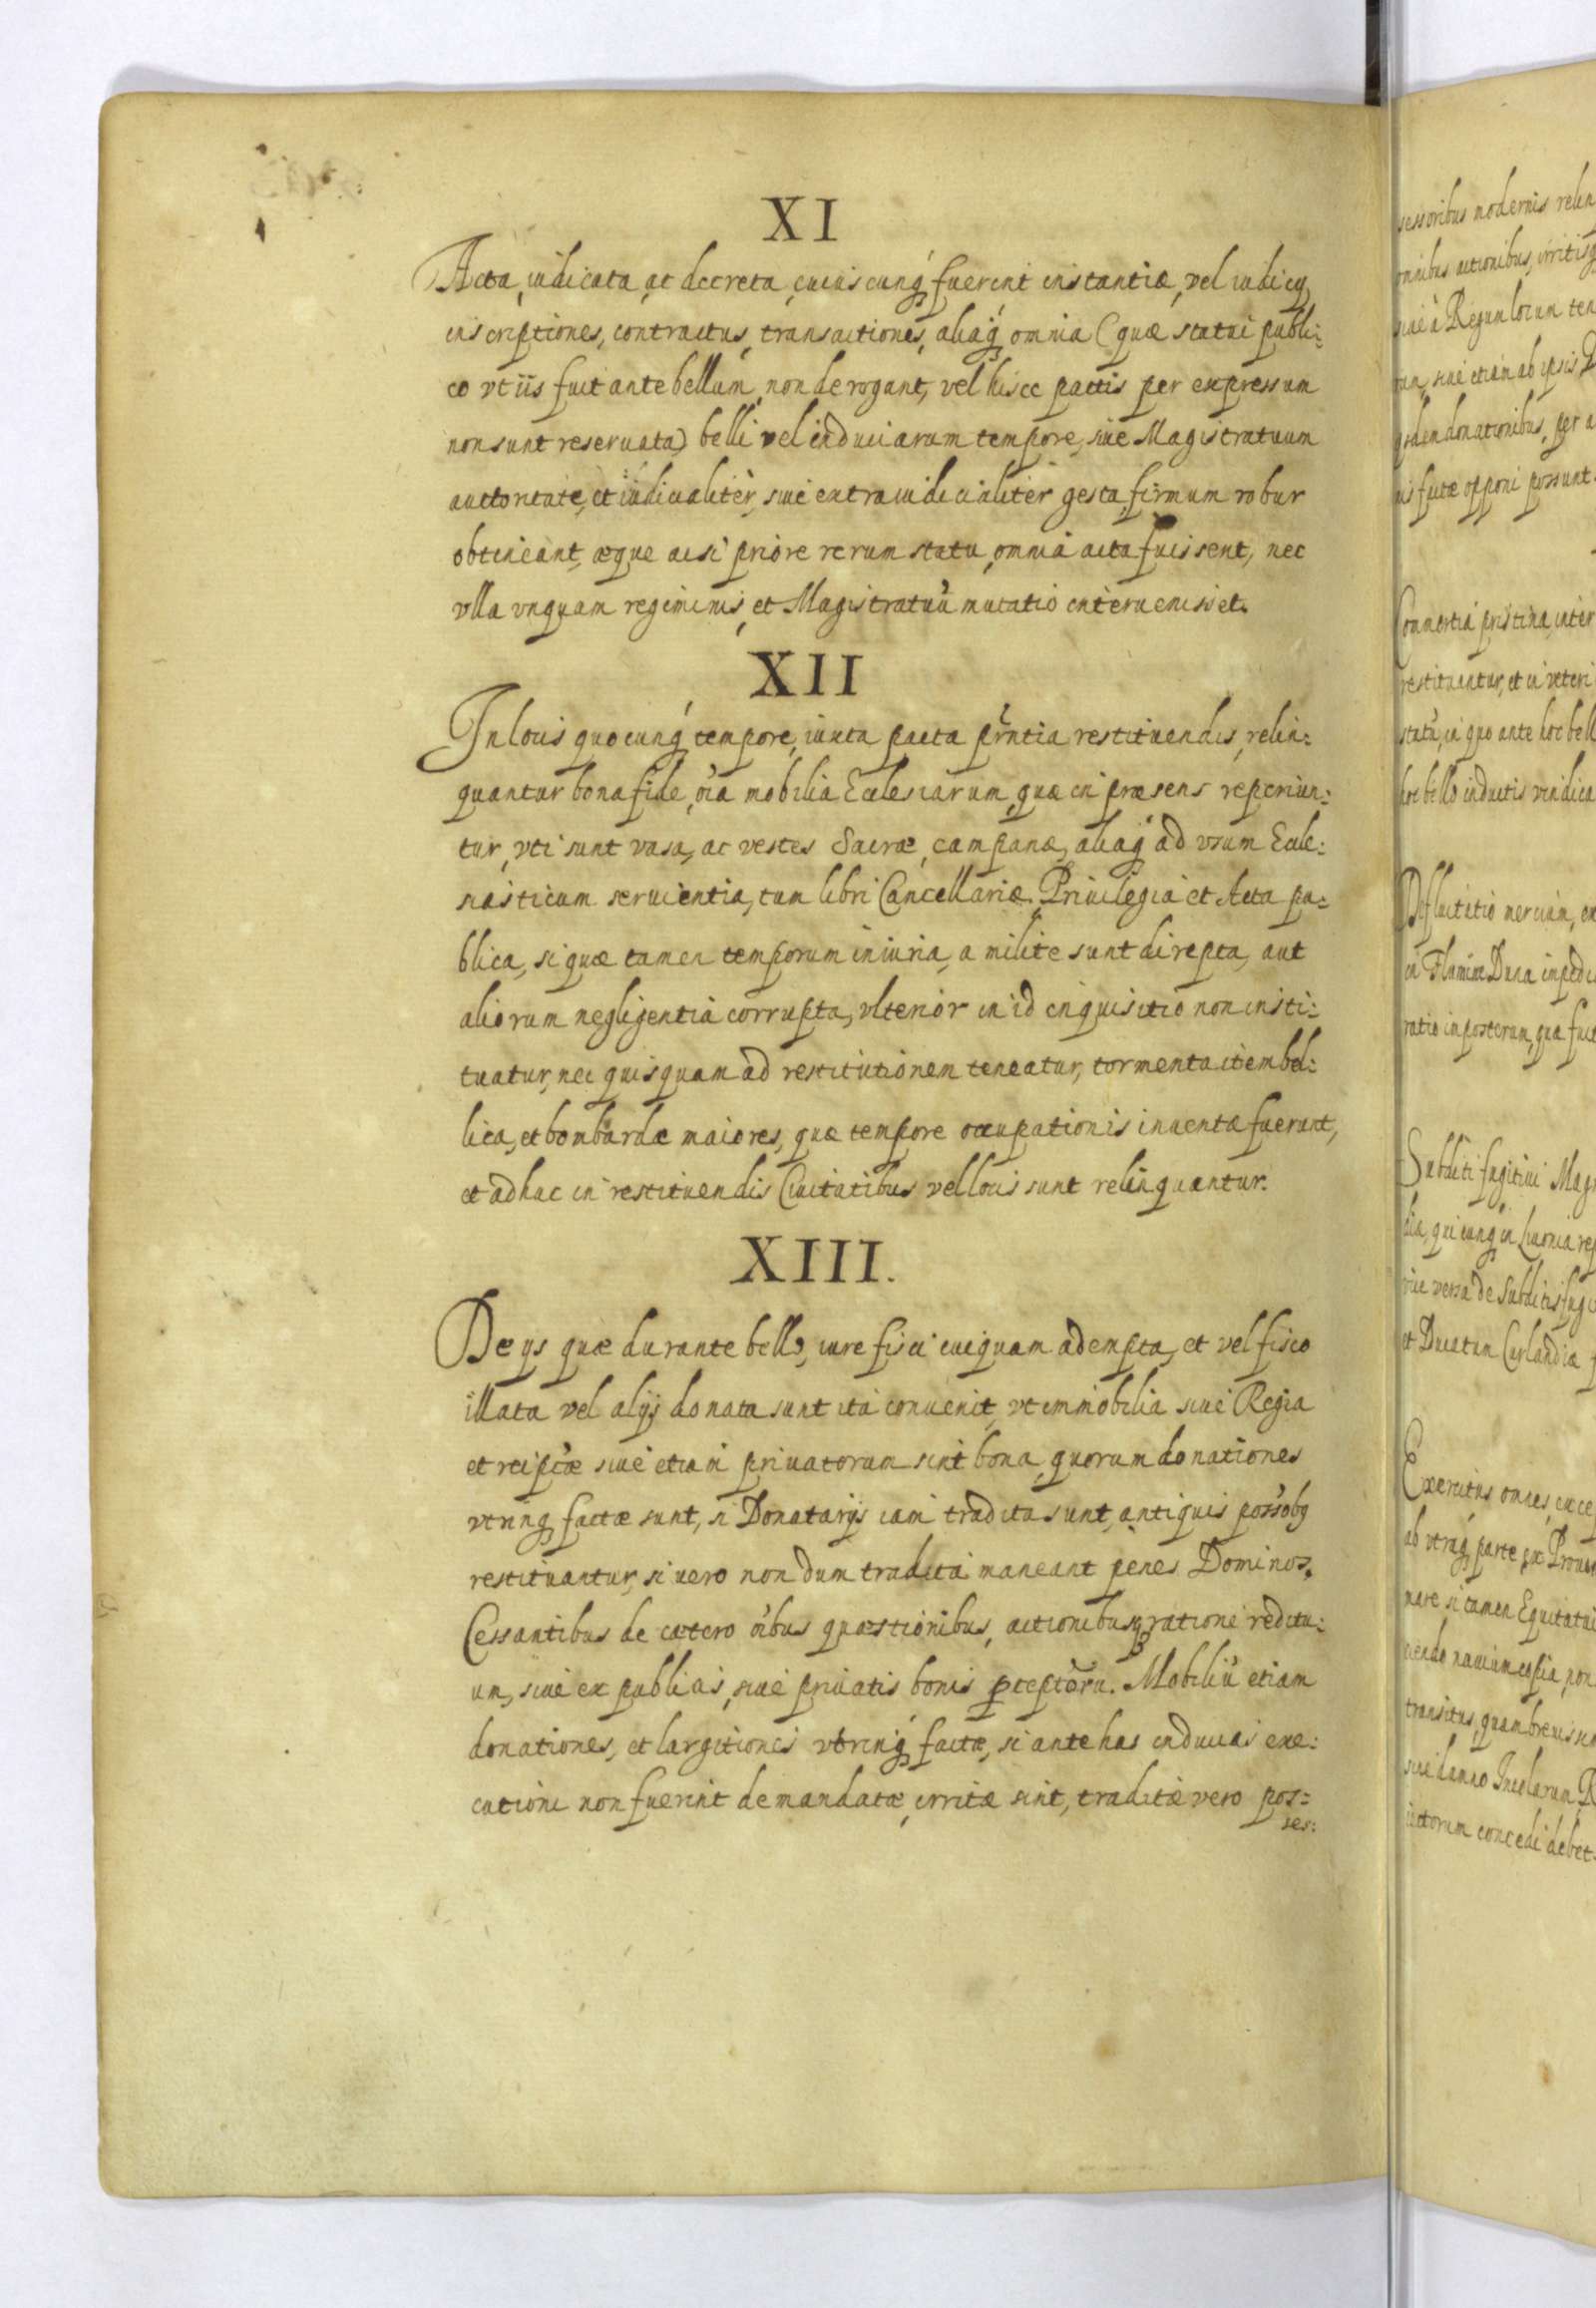 XI
Acta, iudicata, ac decreta, cuiuscunq́ꝫ fuerint instantiæ, vel iudicij,
inscriptiones, contractus, transactiones, aliaq́ꝫ omnia (quæ statui publi:
co vt iis fuit ante bellum, non derogant, vel hisce pactis per expressum
non sunt reseruata) belli vel induciarum tempore, siue Magistratuum
auctoritate, et iudicialiter, siue extraiudicialiter gesta, firmum robur
obtineant, æque ac si priore rerum statu, omnia acta fuissent, nec
vlla vnquam regiminis, et Magistratuū mutatio interuenisset.
XII
In locis quocunq́ꝫ tempore, iuxta pacta pr̃ntia restituendis, relin:
quantur bona fide, oīa mobilia Ecclesiarum, quæ in præsens reperiun:
tur, vti sunt vasa, ac vestes Sacræ, campanæ, aliaq́ꝫ ad vsum Eccle:
siasticum seruientia, tum libri Cancellariæ. Priuilegia et Acta pu:
blica, si quæ tamen temporum iniuria, a milite sunt direpta, aut
aliorum negligentia corrupta, vlterior in id inquisitio non insti:
tuatur, nec quisquam ad restitutionem teneatur, tormenta item bel:
lica, et bombardæ maiores, quæ tempore occupationis inuenta fuerunt,
et adhuc in restituendis Ciuitatibus vel locis sunt relinquantur.
XIII.
De ijs quæ durante bello, iure fisci cuiquam adempta, et vel fisco
illata vel alijs donata sunt ita conuenit, vt immobilia siue Regia
et reipc̃æ siue etiam priuatorum sint bona, quorum donationes
vtrinq́ꝫ factæ sunt, si Donatarijs iam tradita sunt, antiquis poss̃obꝫ
restituantur, si uero nondum tradita maneant penes Dominos.
Cessantibus de cætero oībus quæstionibus, actionibusqꝫ ratione redituu:
um, siue ex publicis, siue priuatis bonis ꝑceptoru. Mobiliū etiam
donationes, et largitiones vtrinq́ꝫ factæ, si ante has inducias exe:
cutioni non fuerint demandatæ, irritæ sint, traditæ vero pos:
ses:
sessoribus modernis relin
omnibus actionibus, irritisq
siue à Regum locum ten
tum, siue etiam ab ipsis
donationibus, per
factæ opponi possunt.
Commertia pristina, inter
restituantur, et in veteri
statū, in quo ante hoc bell
hoc bello inductis vindica
mercium, ex
in Flumine Duna impedi
ratio in posterum, quæ fuit
Subditi fugitiui Mag
quicunq́ꝫ in Liuonia rep
uice versa de Subditis fugi
et Ducatum Curlandiæ
Exercitus omnes, exce
ab vtraq́ꝫ parte, ex Prouin
mare si tamen Equitatui
nauium copia, non
transitus, quam breuis
siue damno Incolarum
concedi debet.